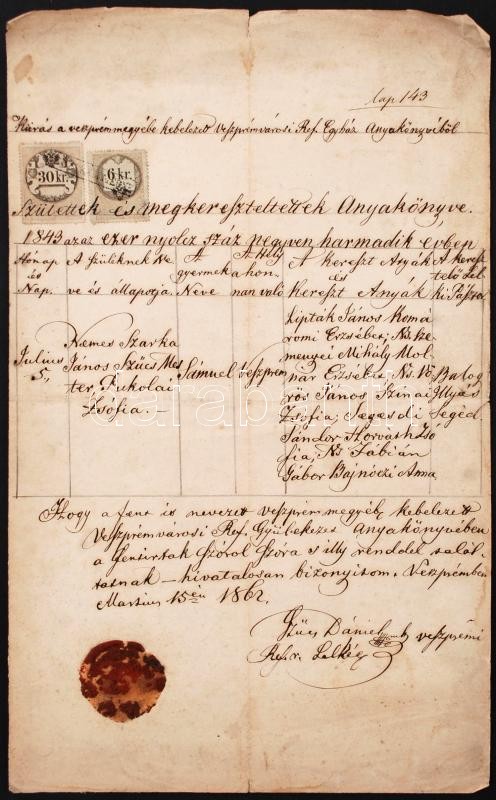 Lap 143
Kiirás a veszprémmegyébe kebelezett Veszprémvárosi Ref. Egyház Anyakönyvéből
30 kr.
6 kr.
Születtek és megkereszteltettek Anyakönyve.
1843 azaz ezer nyolcz száz negyven harmadik évben
Hónap és Nap.
A szüléknek Ne ve és állapotja
A gyermek Neve
A Hely a hon nan való
A kereszt Atyák és Kereszt Anyák
A keresz telő Lel ki Pásztor
Julius 5,
Nemes Szarka
János Szűcs Mes
ter, Pukolai
Zsófia. —
Sámuel
Veszprém
Lipták János Koma
romi Erzsébet; Ns Ke
menyei Mihály Mol
nár Erzsébet; Ns Vö
rös János Szinai
Zsofia; Segesdi
Sándor Horvath Zsó
fia; Ns Fábián
Gábor Bajnóczi Anna
Balog
Mátyás
Segéd
Hogy a fent is nevezett veszprémmegyéb, kebelezett
Veszprémvárosi Ref. Gyülekezet Anyakönyvében
a fentirtak Szóról Szóra s illy renddel talál
tatnak — hivatalosan bizonyitom. Veszprémben
Martius 15én 1862.
Szűcs Dániel veszprémi
Ref. Lelkész
darabanth